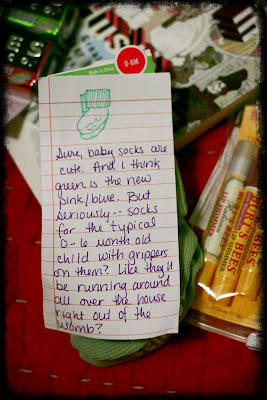 Made in China
0-6M
Sure, baby socks are
cute. And I think
green is the new
pink/blue. But
seriously-- socks
for the typical
0-6 month old
child with grippers
on them? Like they'll
be running around
all over the house
right out of the
womb?
BURT'S BEES
BURT'S BEES